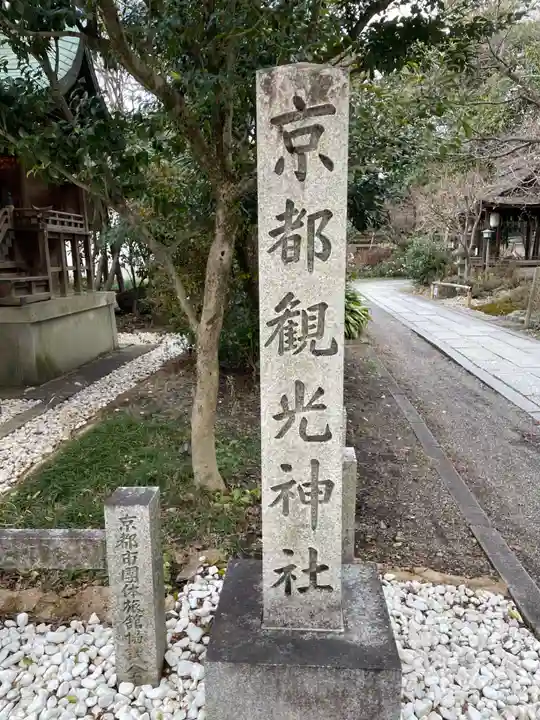 京都観光神社
京都市団体旅館協議会